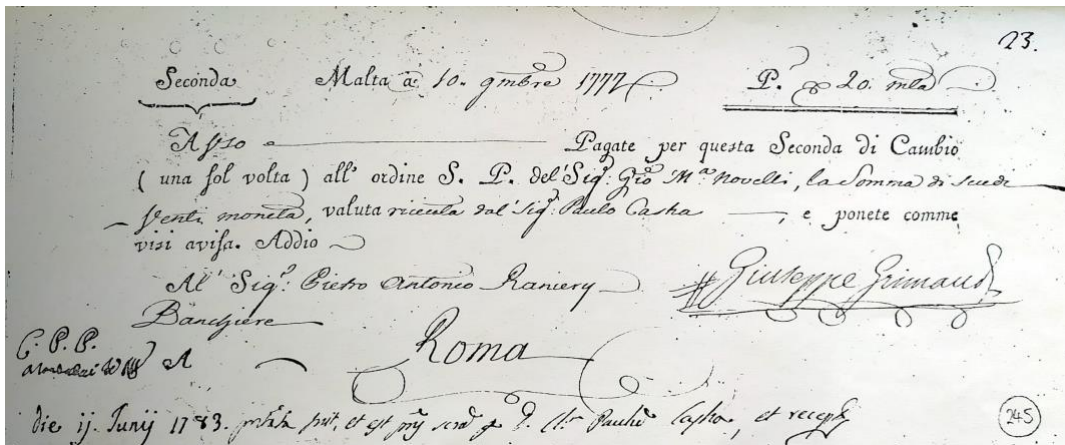 23.
Seconda Malta à 10. 9mbre 1777 P. 20. mta
A uso Pagate per questa Seconda di Cambio
( una sol volta ) all' ordine S. P. del Sig.r Gio M.a Novelli, la Somma di scudi
Venti moneta, valuta riceuta dal Sig.r Paulo Casha, e ponete comme
visi avisa. Addio
Al' Sig.r Pietro Antonio Raniery Giuseppe Grimaud
Banchiere
C. P. P.
A Roma
die ij. Junij 1783. et est p D. Paulu Casha, et
245